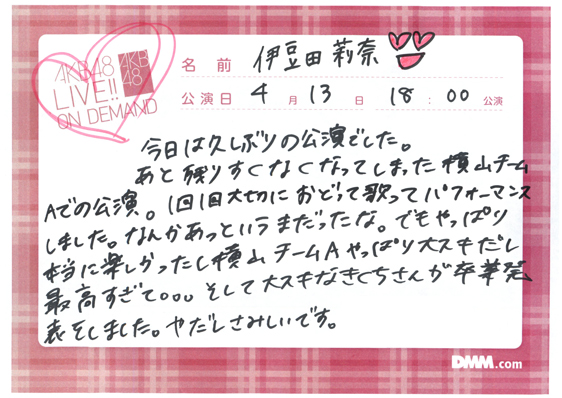 AKB48
LIVE!!
ON DEMAND
AKB
48
名前 伊豆田莉奈
公演日 4月13日 18:00公演
今日は久しぶりの公演でした。
あと残りすくなくなってしまった横山チーム
Aでの公演。1回1回大切におどって歌ってパフォーマンス
しました。なんかあっというまだったな。でもやっぱり
本当に楽しかったし横山チームAやっぱり大スキだし
最高すぎて。。。そして大スキなきくちさんが卒業発
表をしました。ヤだしさみしいです。
DMM.com